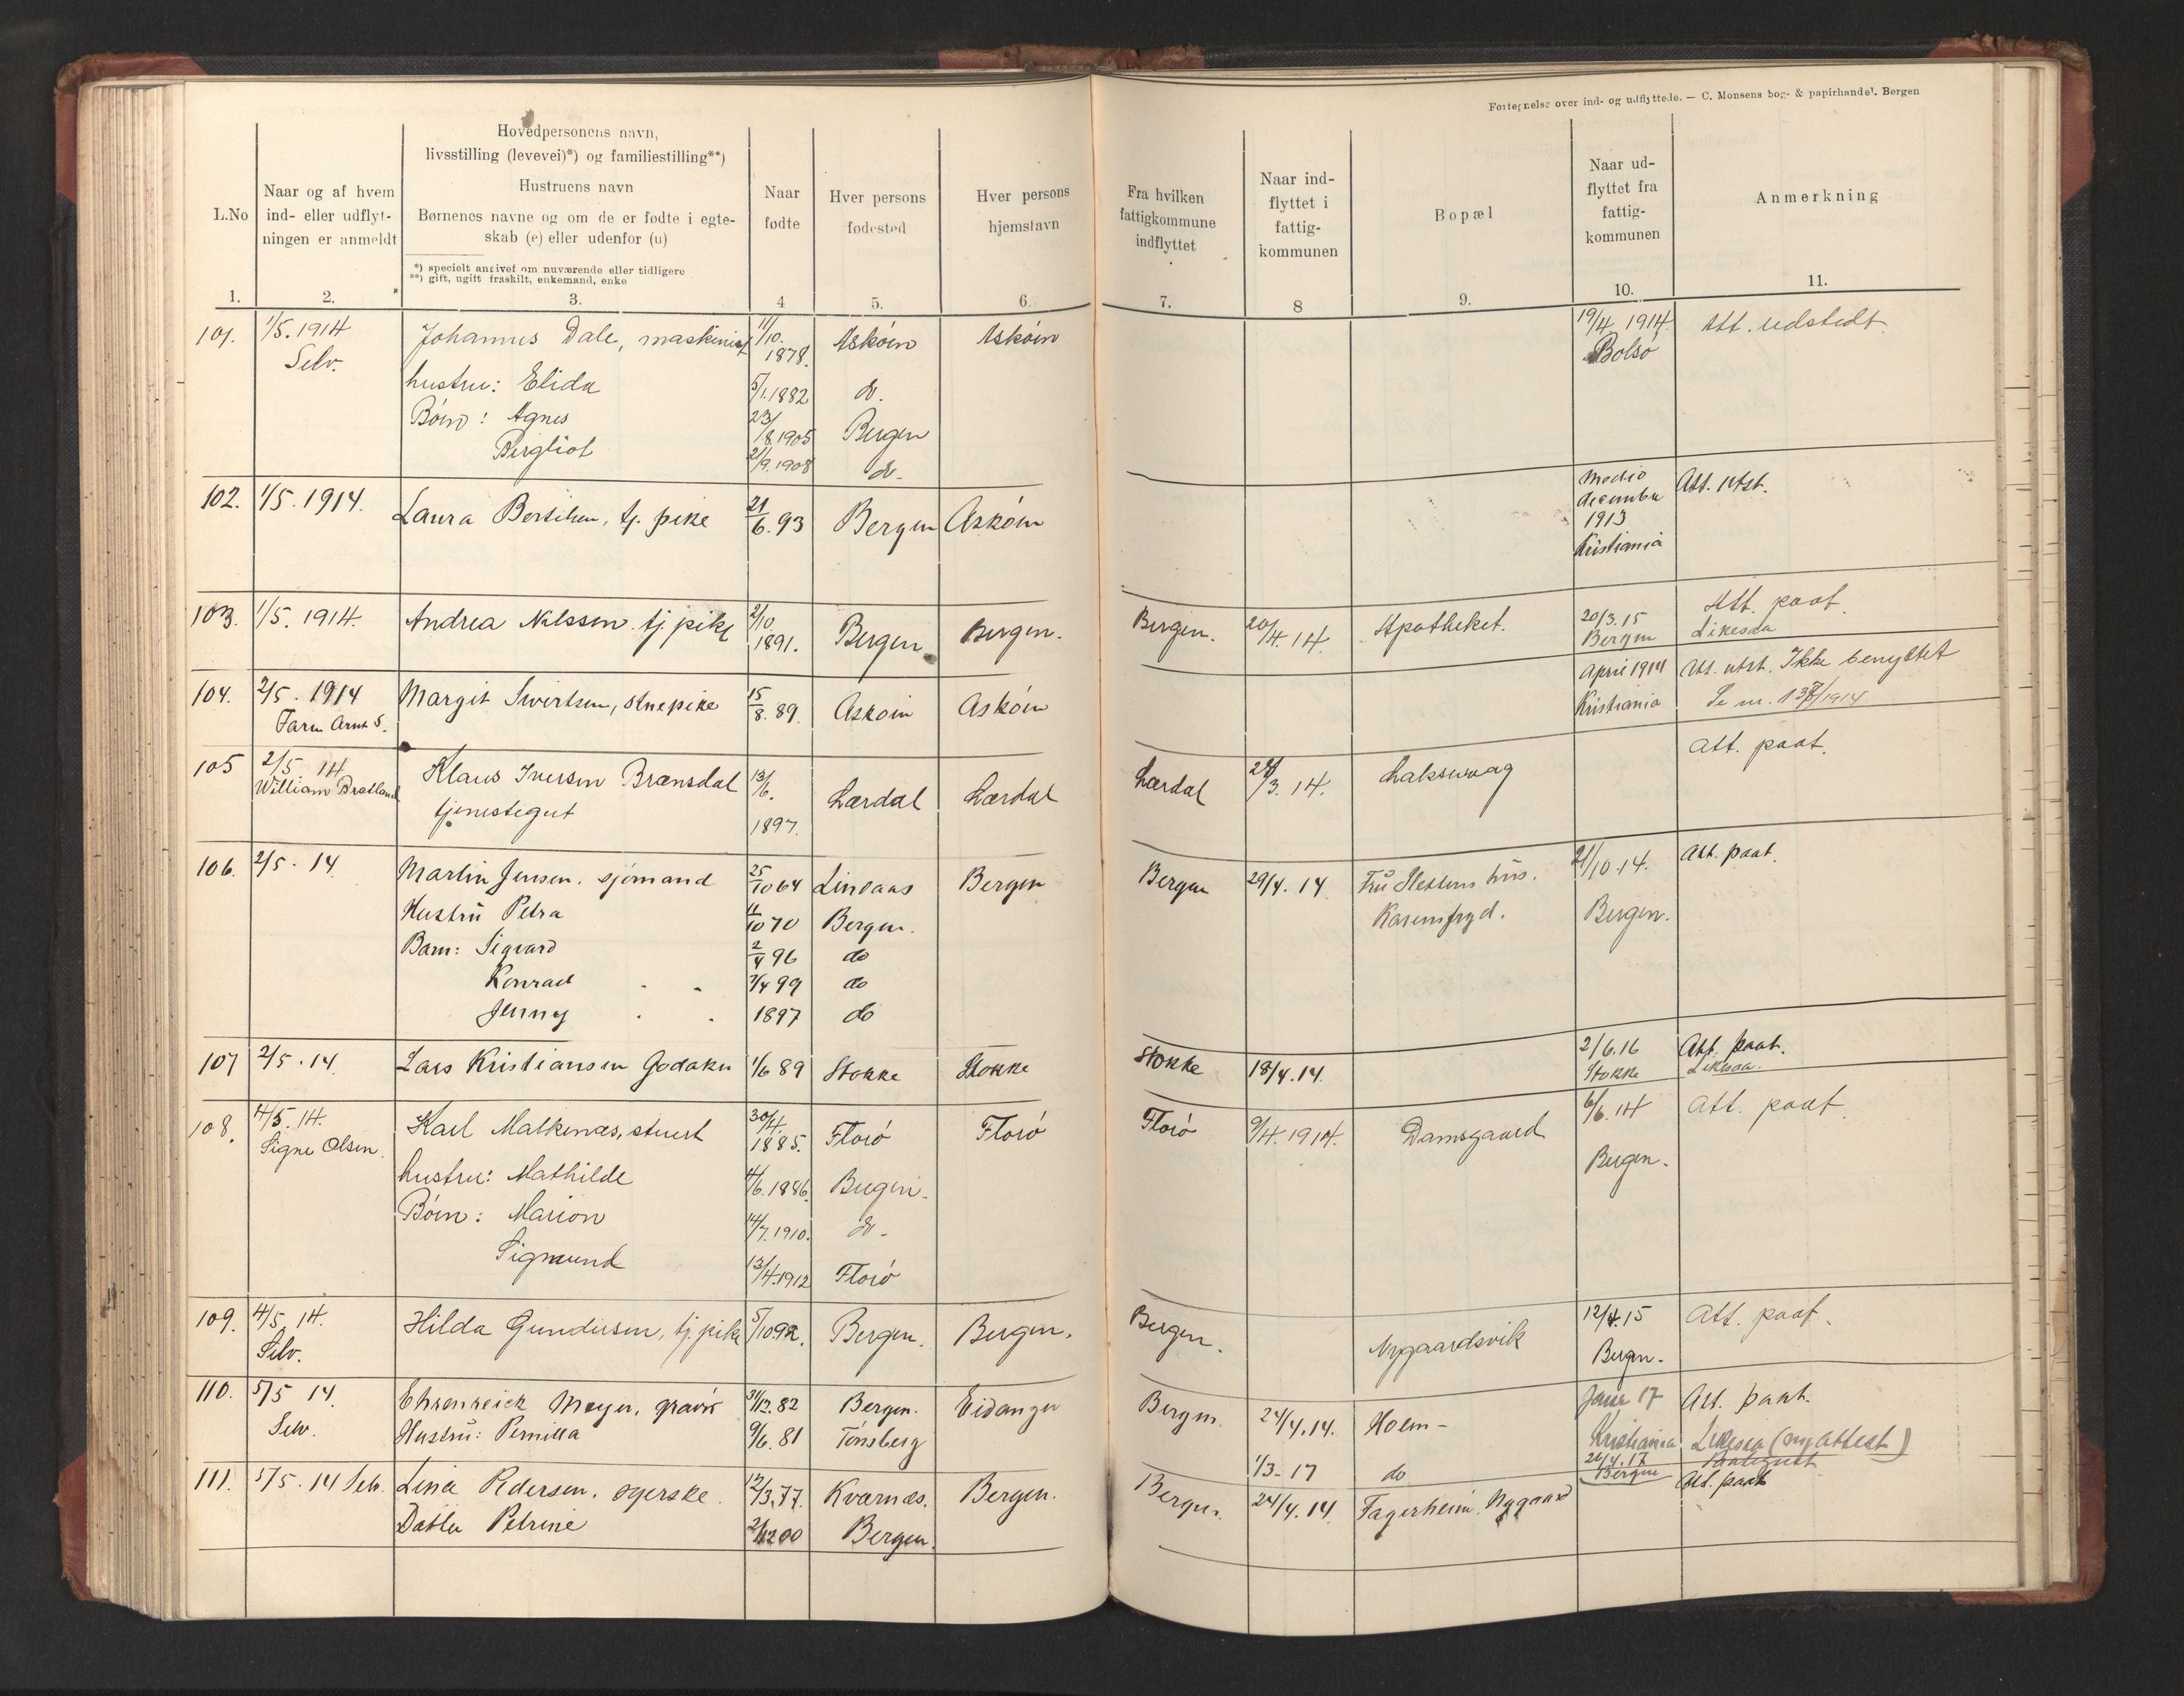 Fortegnelse over ind- og udflyttede. — C. Monsens bog- & papirhandel. Bergen
L.No
1.
Naar og af hvem
ind- eller udflyt-
ningen er anmeldt
2.
Hovedpersonens navn,
livsstilling (levevei)*) og familiestilling**)
Hustruens navn
Børnenes navne og om de er fødte i egte-
skab (e) eller udenfor (u)
*) specielt angivet om nuværende eller tidligere
**) gift, ugift fraskilt, enkemand, enke
3.
Naar
fødte
4
Hver persons
fødested
5.
Hver persons
hjemstavn
6.
Fra hvilken
fattigkommune
indflyttet
7.
Naar ind-
flyttet i
fattig-
kommunen
8
Bopæl
9.
Naar ud-
flyttet fra
fattig-
kommunen
10.
Anmerkning
11.
101. 1/5.1914 Johannes Dale, maskinist 11/10. 1878. Askøen Askøen 19/4 1914. Att. udstedt.
Selv. Bolsø
hustru: Elida 5/1.1882 do.
Børn: Agnes 23/8.1905 Bergen
Bergliot 21/9.1908 do.
102. 1/5.1914. Laura Bertilsen, tj. pike 21/6.93 Bergen Askøen Medio december 1913 Kristiania Att. utst.
103. 1/5.1914. Andrea Nilssen tj. pike 2/10 1891. Bergen Bergen. Bergen. 20/4.14. Apotheket. 20/3.15 Bergen Att. paat.
Likesaa
104. 2/5.1914 Margit Sivertsen, stuepike 15/8.89. Askøen Askøen April 1914 Kristiania Att. utst. Ikke benyttet
Farn Arnt S. Se nr. 137/1914
105 2/5 14 Klaus Iversen Brænsdal 13/6. 1897. Lærdal Lærdal Lærdal 28/3.14. Laksevaag Att. paat.
William Bratland tjenestegut
106. 2/5.14. Martin Jensen. sjømand 25/10 64 Lindaas Bergen Bergen 29/4.14 Fru Slettens hus. 21/10.14. Att. paat.
Hustru Petra 11/10 70 Bergen. Karensfryd. Bergen.
Barn: Sigvard 2/4 96 do
Konrad 7/4 99 do
Jenny 1897 do
107 2/5.14. Lars Kristiansen Godaker 1/6 89 Stokke Stokke Stokke 18/4.14. 2/6.16 Att. paat.
Stokke Likesaa.
108. 4/5.14. Karl Malkenæs, stuert 30/4. 1885. Florø Florø Florø 9/4.1914. Damsgaard 6/6.14 Att. paat
Signe Olsen. Bergen.
hustru: Mathilde 4/6.1886. Bergen.
Børn: Marion 14/7.1910. do.
Sigmund 13/4.1912 Florø
109. 4/5.14. Hilda Gundersen, tj. pike 5/10 92. Bergen. Bergen. Bergen. Nygaardsvik 12/4.15 Att. paat.
Selv. Bergen.
110. 5/5 14. Ehrenreich Meyer, gravør 31/12.82 Bergen. Eidanger Bergen 24/4.14. Holm - Janr 17 Att. paat.
Selv. Hustru: Pernilla 9/6.81 Tønsberg Kristiania Likesaa (ny attest)
1/3-17 do 24/4.17
Bergen
111. 5/5.14 Selv. Lina Pedersen. syerske. 12/3.77. Kvernæs. Bergen. Bergen. 24/4.14. Fagerheim. Nygaard Att. paat
Datter Petrine 2/12 00 Bergen.